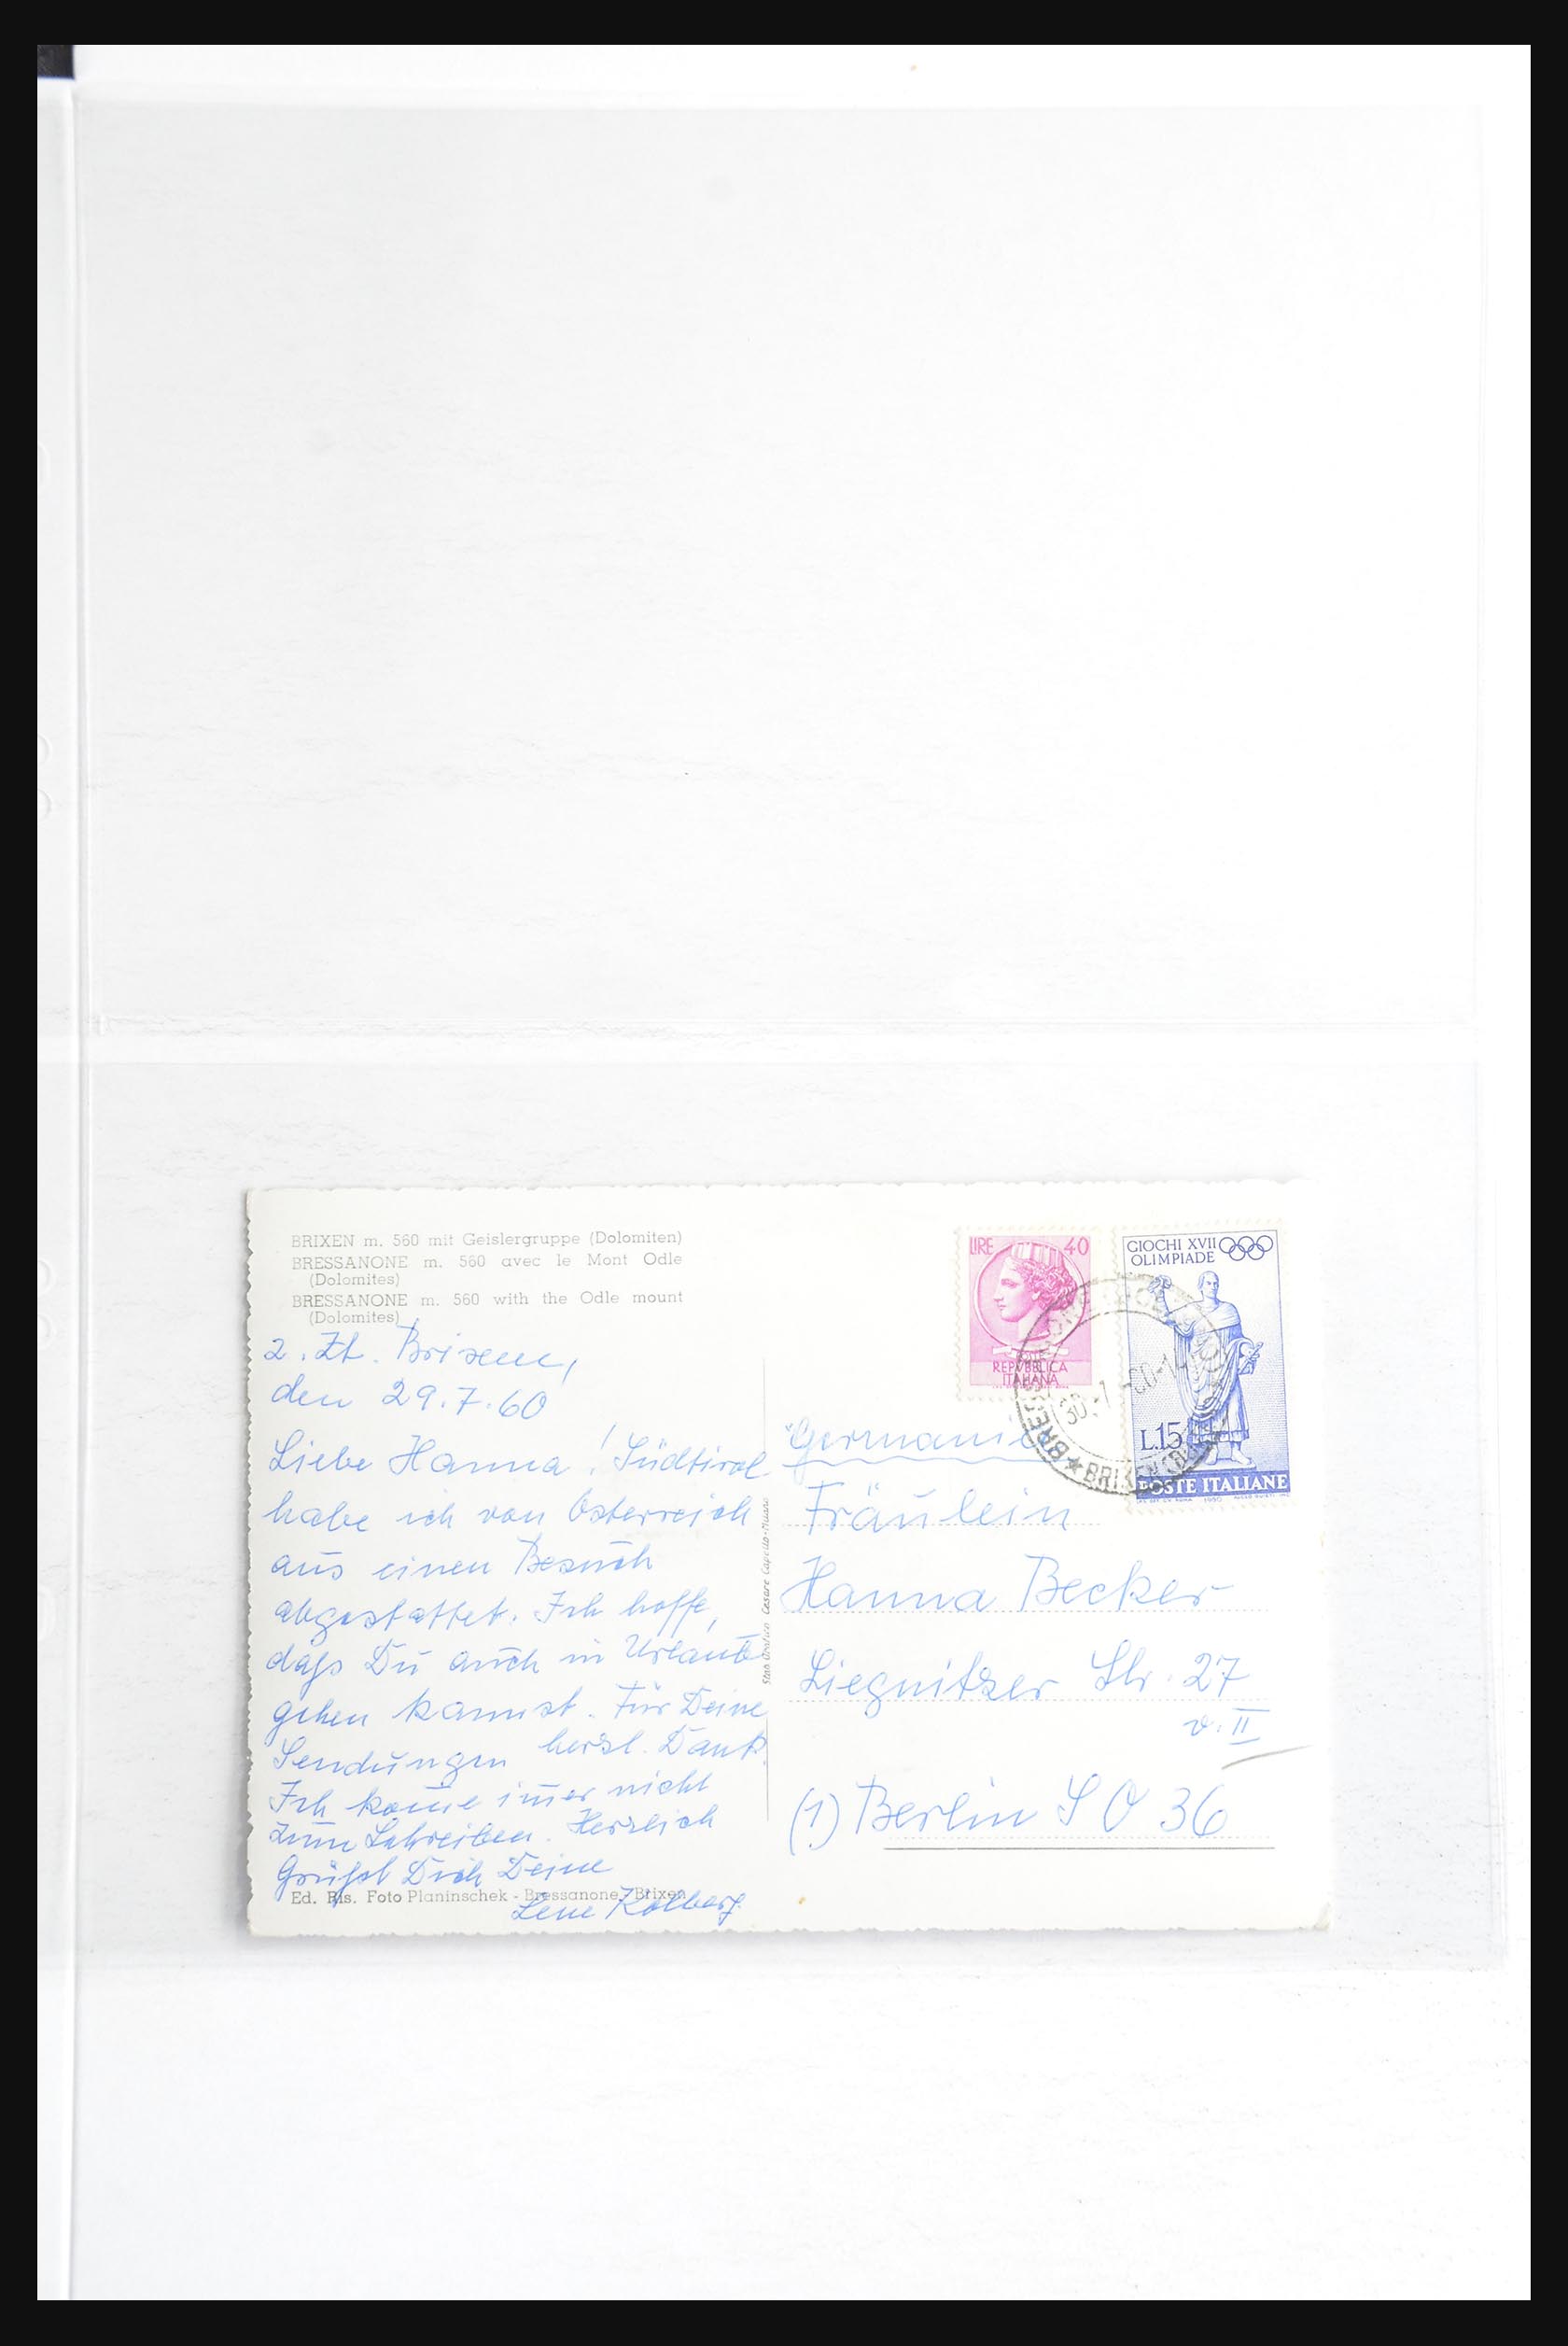 BRIXEN m. 560 mit Geislergruppe (Dolomiten)
BRESSANONE m. 560 avec le Mont Odle
(Dolomites)
BRESSANONE m. 560 with the Odle mount
(Dolomites)
z. Zt. Brixen,
den 29.7.60
Liebe Hanna! Südtirol
habe ich von Österreich
aus einen Besuch
abgestattet. Ich hoffe,
daß Du auch in Urlaub
gehen kannst. Für Deine
Sendungen herzl. Dank.
Ich kom̅e im̅er nicht
zum Schreiben. Herzlich
Grüßt Dich Deine
Lene Kolberg
Ed. Ris. Foto Planinschek - Bressanone - Brixen
Stab. Grafico Cesare Capello - Milano
LIRE 40
POSTE
REPVBBLICA
ITALIANA
GIOCHI XVII
OLIMPIADE
L.15
POSTE ITALIANE
30.-7 -60-1
★ BRIXEN
Germania
Fräulein
Hanna Becker
Liegnitzer Str. 27
v. II
(1) Berlin S O 36